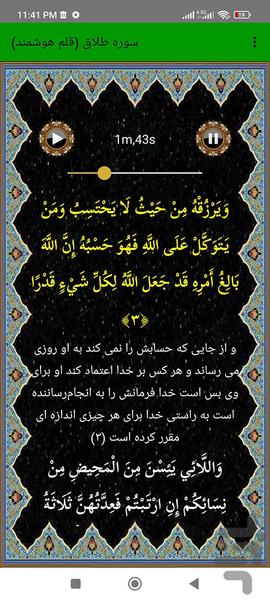 11:41 PM
4.5G
19
سوره طلاق (قلم هوشمند)
1m,43s
وَيَرْزُقْهُ مِنْ حَيْثُ لَا يَحْتَسِبُ وَمَنْ
يَتَوَكَّلْ عَلَى اللَّهِ فَهُوَ حَسْبُهُ إِنَّ اللَّهَ
بَالِغُ أَمْرِهِ قَدْ جَعَلَ اللَّهُ لِكُلِّ شَيْءٍ قَدْرًا
﴿٣﴾
و از جایی که حسابش را نمی کند به او روزی
می رساند و هر کس بر خدا اعتماد کند او برای
وی بس است خدا فرمانش را به انجام‌رساننده
است به راستی خدا برای هر چیزی اندازه ای
مقرر کرده است (۳)
وَاللَّائِي يَئِسْنَ مِنَ الْمَحِيضِ مِنْ
نِسَائِكُمْ إِنِ ارْتَبْتُمْ فَعِدَّتُهُنَّ ثَلَاثَةُ